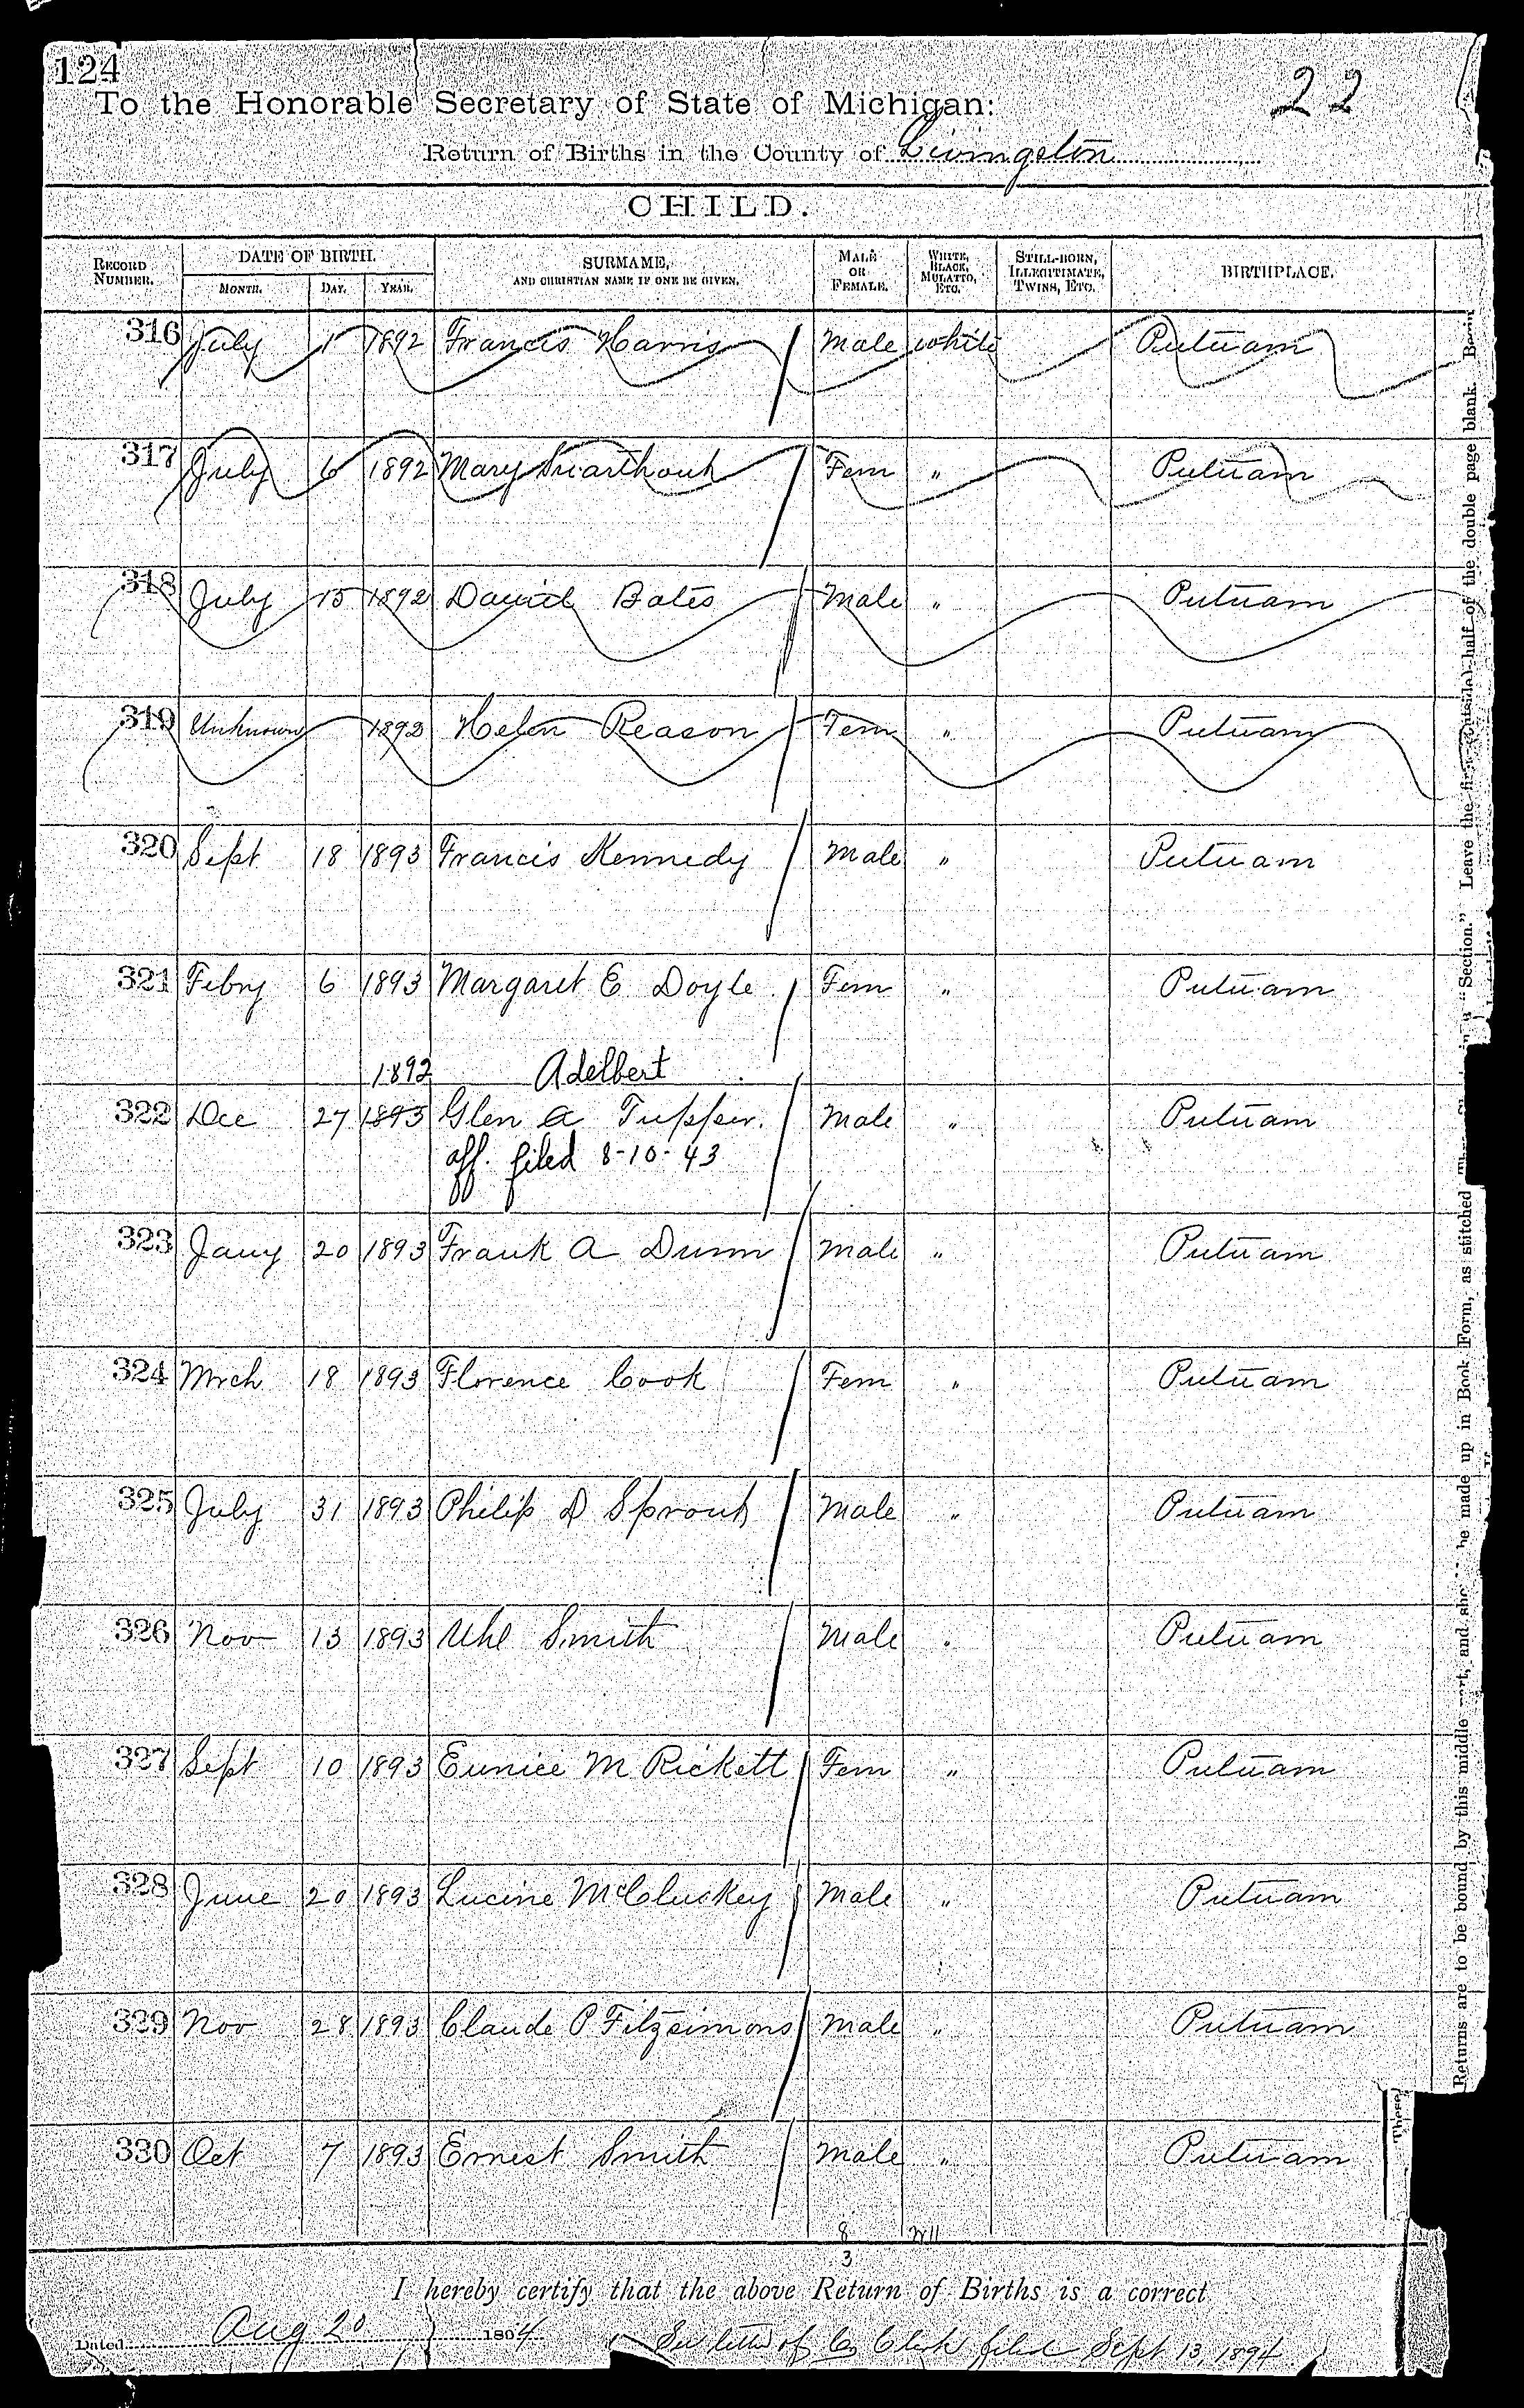 124
22
To the Honorable Secretary of State of Michigan:
Return of Births in the County of Livingston
CHILD.
RECORD NUMBER. DATE OF BIRTH. MONTH. DAY. YEAR. SURMAME, AND CHRISTIAN NAME IF ONE BE GIVEN. MALE OR FEMALE. WHITE, BLACK, MULATTO, ETC. STILL-BORN, ILLEGITIMATE, TWINS, ETC. BIRTHPLACE.
316 July 1 1892 Francis Harris Male white Putnam
317 July 6 1892 Mary Swarthout Fem " Putnam
318 July 15 1892 Daniel Bates Male " Putnam
319 Unknown 1892 Helen Reason Fem " Putnam
320 Sept 18 1893 Francis Kennedy Male " Putnam
321 Febry 6 1893 Margaret E Doyle Fem " Putnam
1892 Adelbert
322 Dec 27 1893 Glen A Tupper. Male " Putnam
aff. filed 8-10-43
323 Jany 20 1893 Frank A Dunn Male " Putnam
324 Mrch 18 1893 Florence Cook Fem " Putnam
325 July 31 1893 Philip D Sprout Male " Putnam
326 Nov 13 1893 Uhl Smith Male " Putnam
327 Sept 10 1893 Eunice M Rickett Fem " Putnam
328 June 20 1893 Lucine McCluskey Male " Putnam
329 Nov 28 1893 Claude P Fitzsimons Male " Putnam
330 Oct 7 1893 Ernest Smith Male " Putnam
8 W11
3
I hereby certify that the above Return of Births is a correct
Dated Aug 20 1894 See letter of Co Clerk filed Sept 13, 1894
Returns are to be bound by this middle be made up in Book Form, as stitched
"Section." Leave the first (outside) half of the double page blank.
These